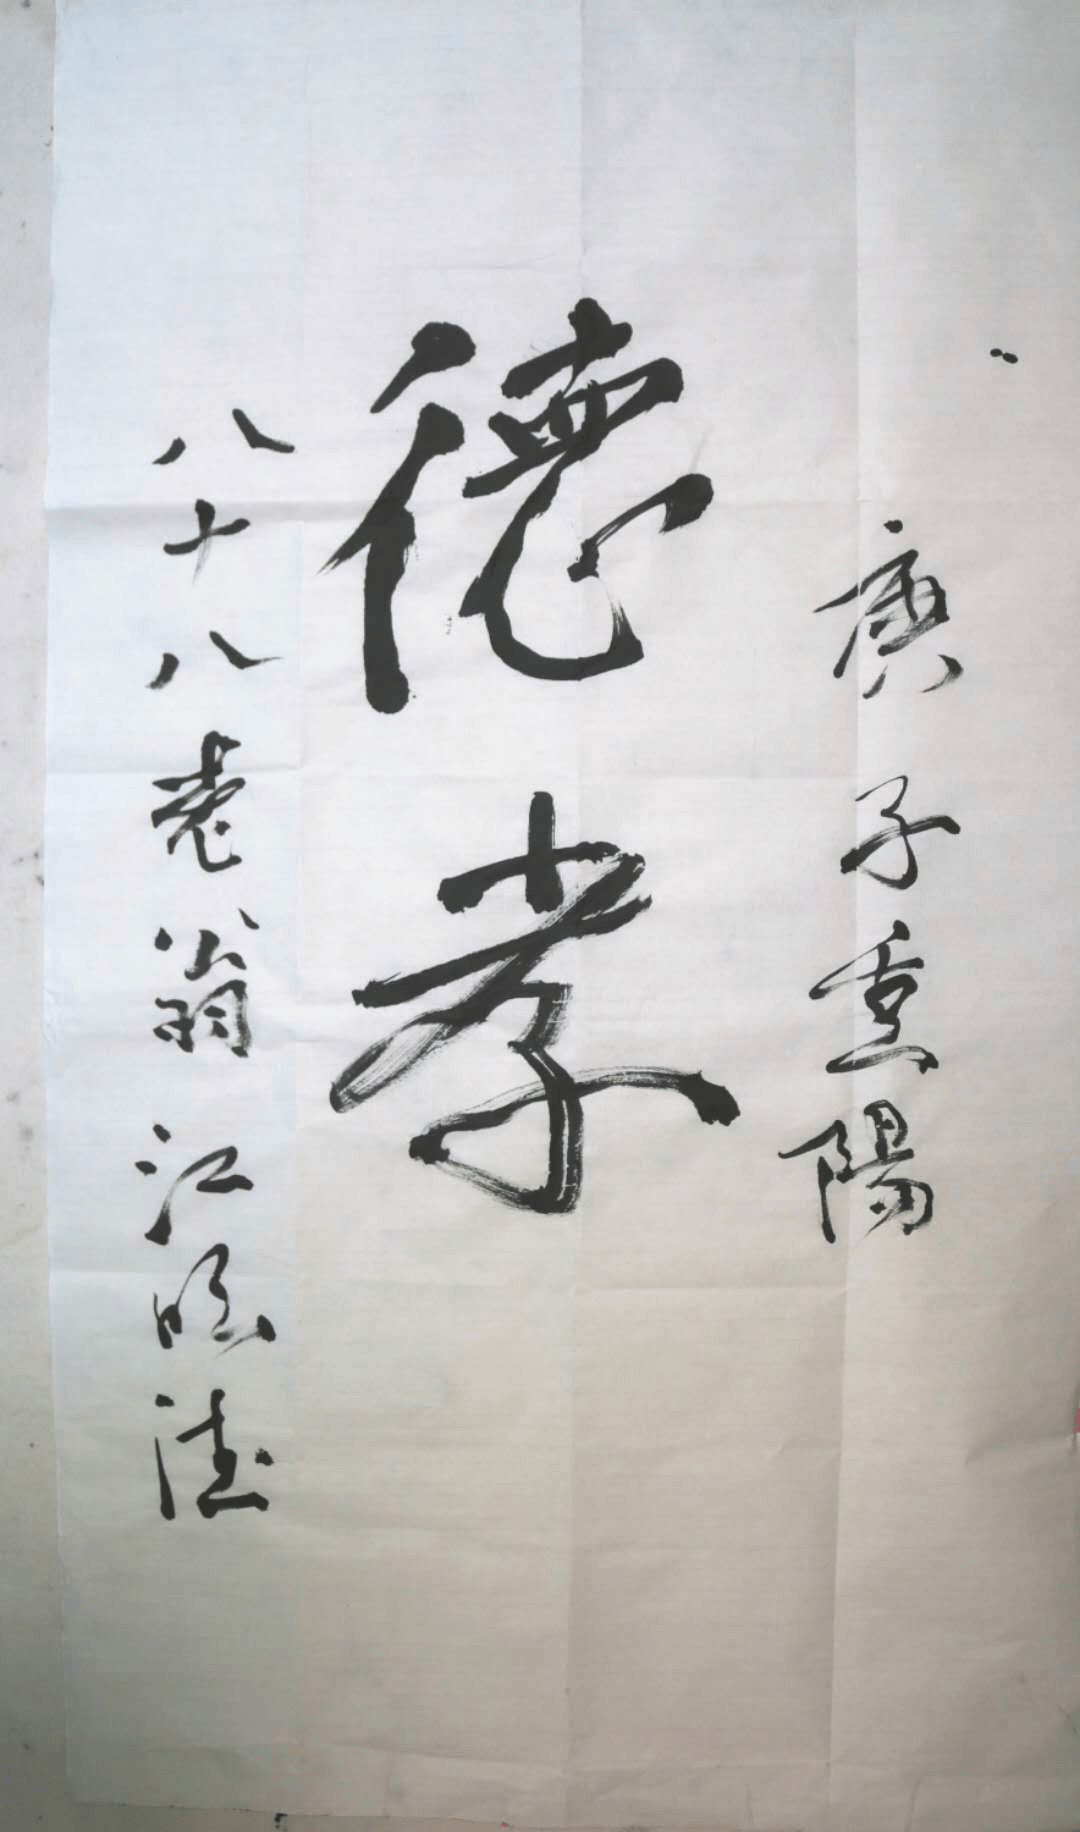 庚子重陽
德孝
八十八老翁江